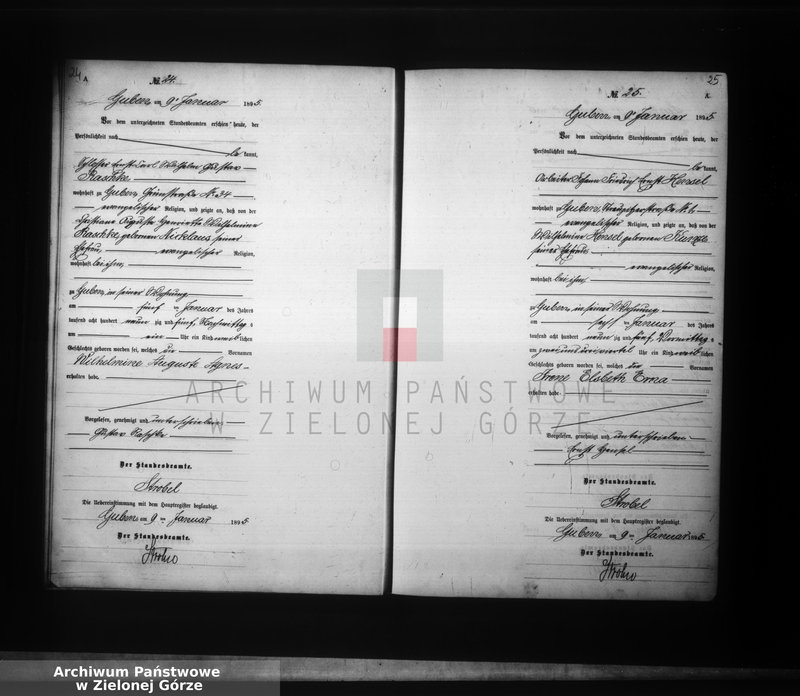 24
A
№ 24.
Guben, am 9ten Januar 1895.
Vor dem unterzeichneten Standesbeamten erschien heute, der
Persönlichkeit nach
be kannt,
Schlosser Ernst Carl Wilhelm Gustav
Raschke
wohnhaft zu Guben, Grünstraße Nr. 24
evangelischer Religion, und zeigte an, daß von der
Auguste Henriette Wilhelmine
Raschke, gebornen Nicklaus, seiner
Ehefrau, evangelischer Religion,
wohnhaft bei ihm,
zu Guben in seiner Wohnung,
am fünf ten Januar des Jahres
tausend acht hundert neun zig und fünf, Nachmittags
um ein Uhr ein Kind weib lichen
Geschlechts geboren worden sei, welches die Vornamen
Wilhelmine Auguste Agnes
erhalten habe.
Vorgelesen, genehmigt und unterschrieben
Gustav Raschke
Der Standesbeamte.
Strobel
Die Uebereinstimmung mit dem Hauptregister beglaubigt.
Guben am 9ten Januar 1895
Der Standesbeamte.
25
№ 25.
Guben, am 9ten Januar 1895
Vor dem unterzeichneten Standesbeamten erschien heute, der
Persönlichkeit nach
be kannt,
Arbeiter Johann Friedrich Ernst Hensel
wohnhaft zu Guben,
evangelischer Religion, und zeigte an, daß von der
Wilhelmine Hensel, gebornen Kunze
seiner Ehefrau
evangelischer Religion,
wohnhaft bei ihm,
zu Guben in seiner Wohnung,
am sechs ten Januar des Jahres
tausend acht hundert neun zig und fünf, Vormittags
um Uhr ein Kind weib lichen
Geschlechts geboren worden sei, welches die Vornamen
Irene Elsbeth Erna
erhalten habe.
Vorgelesen, genehmigt und unterschrieben
Ernst Hensel
Der Standesbeamte.
Strobel
Die Uebereinstimmung mit dem Hauptregister beglaubigt.
Guben, am 9ten Januar 1895
Der Standesbeamte.
ARCHIWUM PAŃSTWOWE
W ZIELONEJ GÓRZE
Archiwum Państwowe
w Zielonej Górze